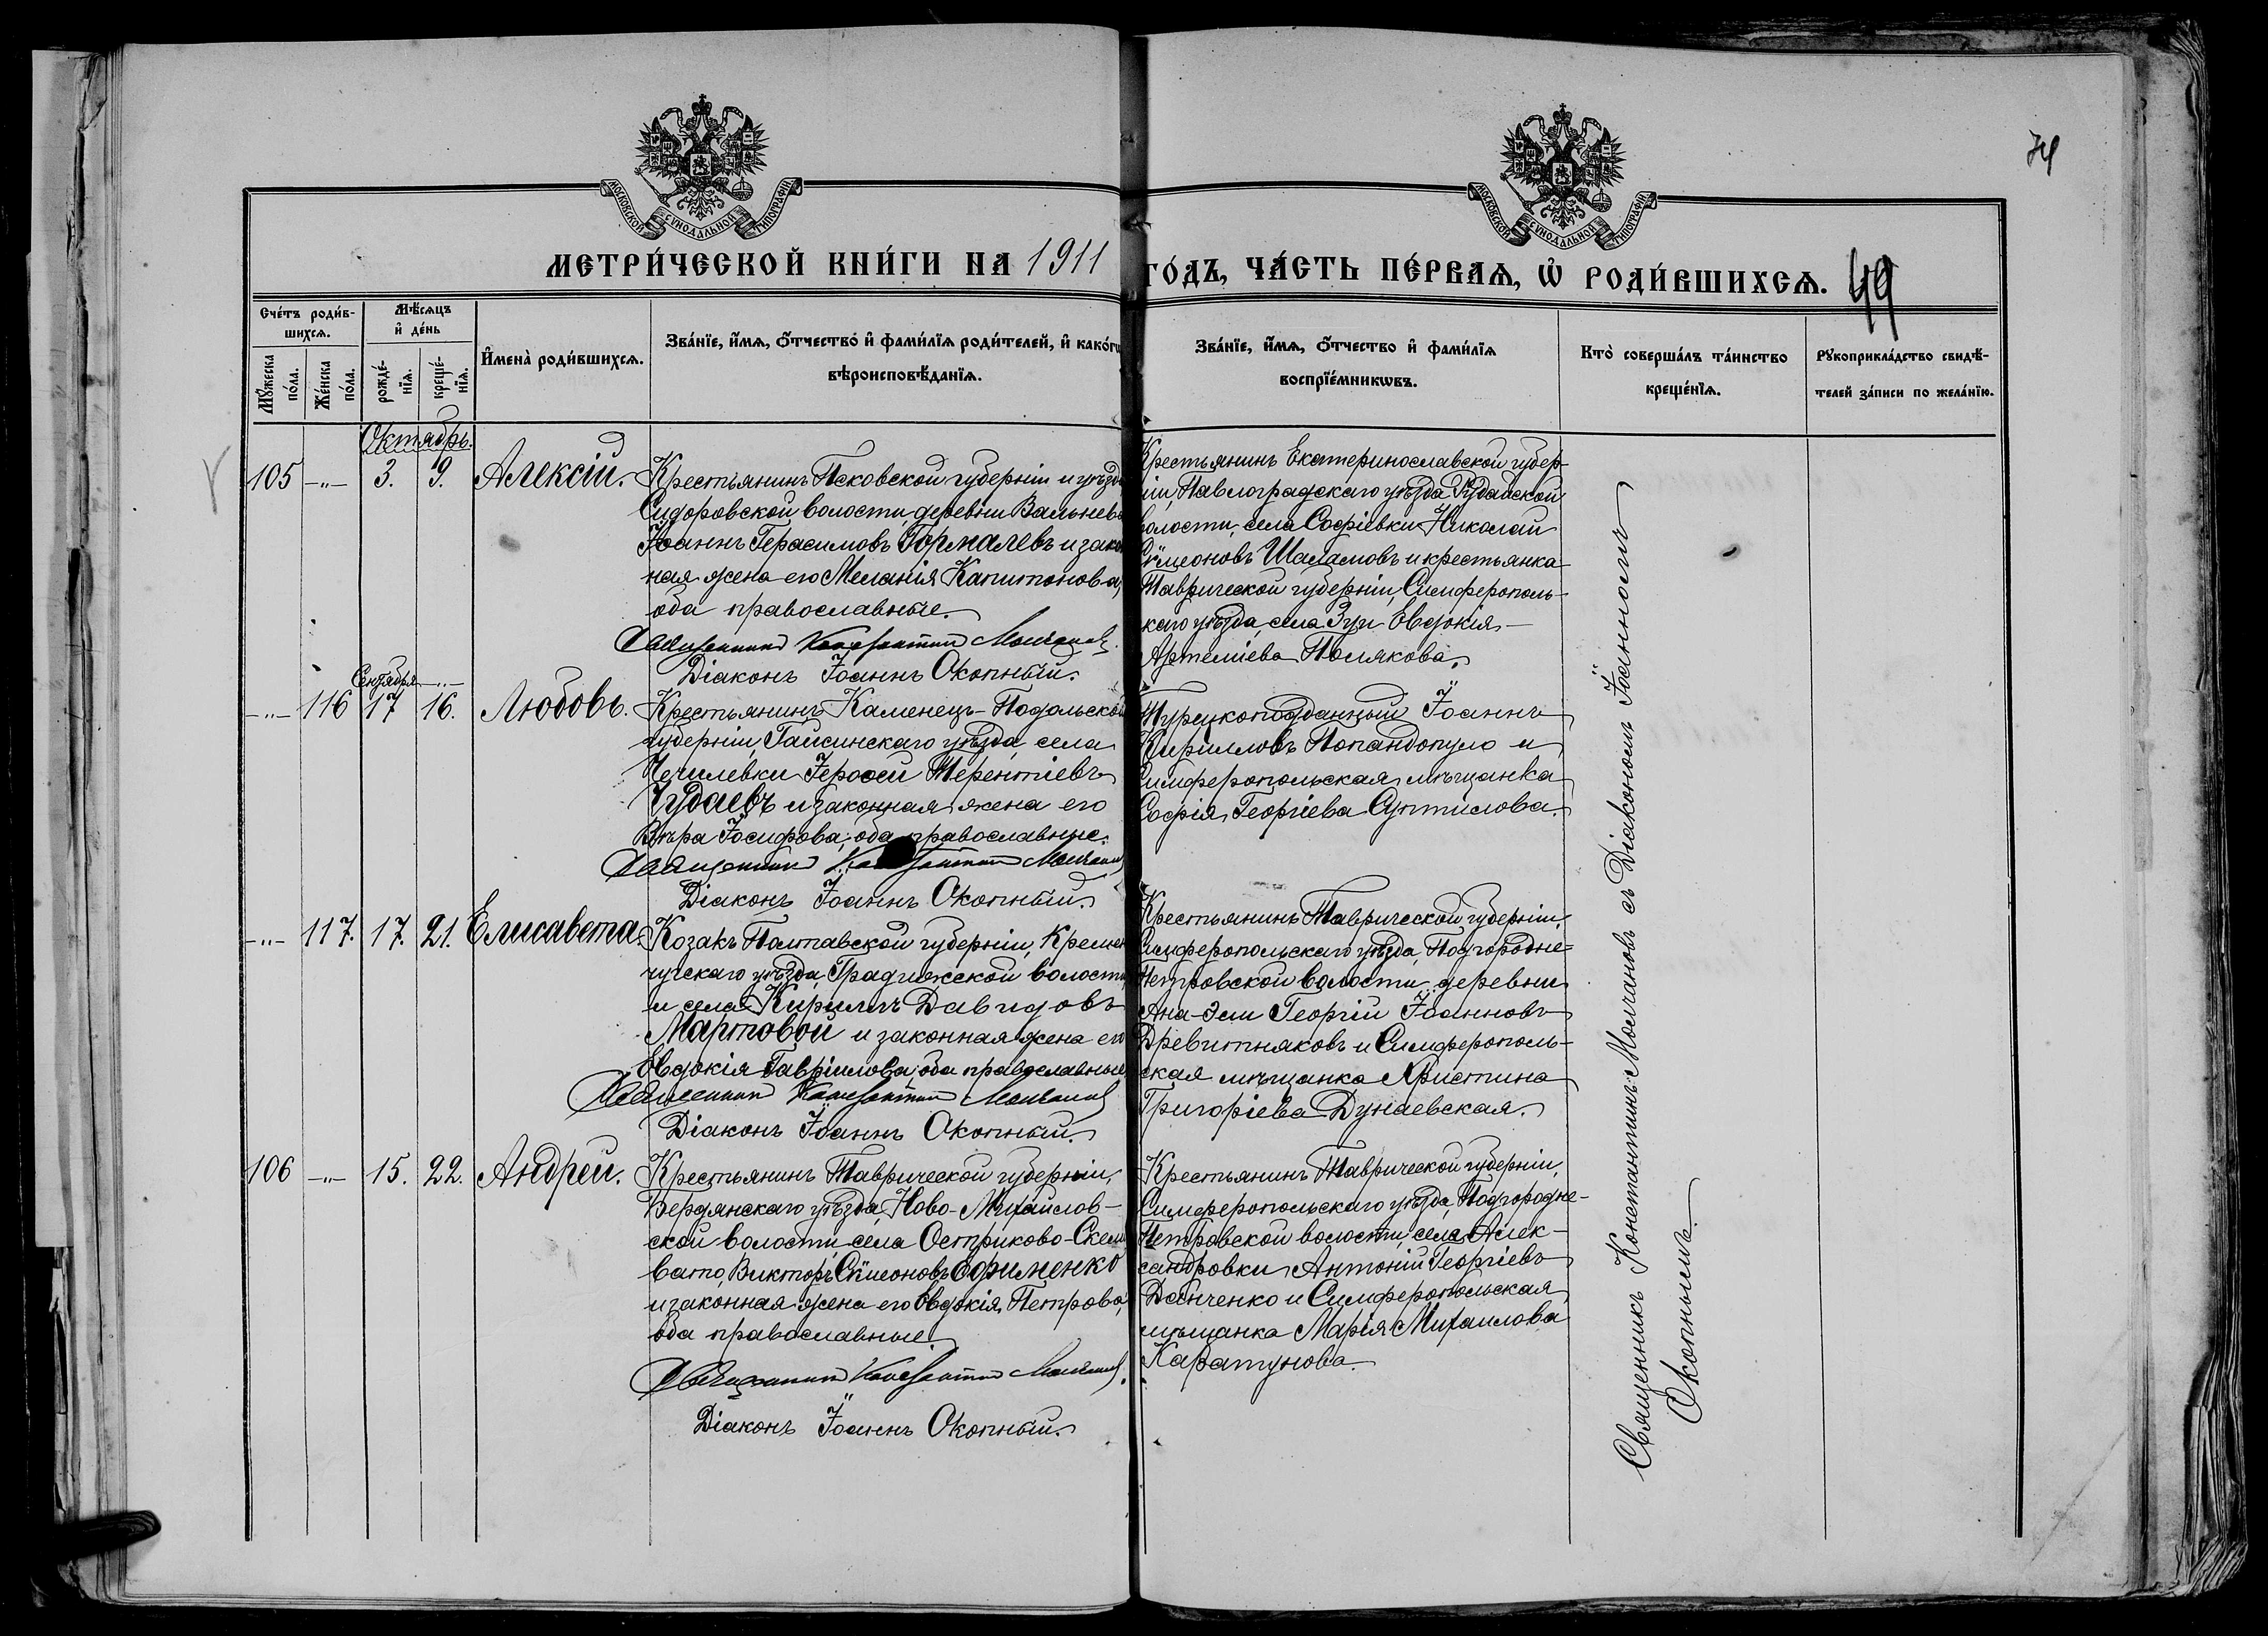 74
МОСКОВСКОЙ СѴНОДАЛЬНОЙ ТИПОГРАФІИ
МОСКОВСКОЙ СѴНОДАЛЬНОЙ ТИПОГРАФІИ
МЕТРИ́ЧЕСКОЙ КНИ́ГИ НА 1911 ГО́ДЪ, ЧА́СТЬ ПЕ́РВАѦ, Ѽ РОДИ́ВШИХСѦ. 49
Сче́тъ роди́в-
шихсѧ.
Мꙋ́жеска
по́ла.
Же́нска
по́ла.
Мѣ́сѧцъ
и҆ де́нь
рожде́-
нїѧ.
креще́-
нїѧ.
И҆мена̀ роди́вшихсѧ.
Зва́нїе, и҆́мѧ, ѻ҆́тчество и҆ фами́лїѧ роди́телей, и҆ како́гѡ
вѣроисповѣ́данїѧ.
Зва́нїе, и҆́мѧ, ѻ҆́тчество и҆ фами́лїѧ
воспрїе́мникѡвъ.
Кто̀ соверша́лъ та́инство
креще́нїѧ.
Рꙋкоприкла́дство свидѣ́-
телей за́писи по жела́нїю.
Октябрь.
105 —"— 3. 9. Алексій.
Крестьянинъ Псковской губерніи и уѣзда
Сидоровской волости, деревни
Іоаннъ Герасимовъ Гормалевъ и закон
ная жена его Меланія Капитонова,
оба православные.
Священникъ Константинъ Молчановъ
Діаконъ Іоаннъ Окопный.
Крестьянинъ Екатеринославской губер-
ніи, Павлоградскаго уѣзда,
волости, села Софіевки Николай
Сѵмеоновъ Шаламовъ и крестьянка
Таврической губерніи, Симферополь-
скаго уѣзда, села Зуи Евдокія
Артеміева Полякова.
Сентября —"—
—"— 116 17 16. Любовь.
Крестьянинъ Каменецъ-Подольской
губерніи, Гайсинскаго уѣзда, села
Чечилевки Іерофей Терентіевъ
Чудаевъ и законная жена его
Вѣра Іосифова, оба православные.
Священникъ Константинъ Молчановъ
Діаконъ Іоаннъ Окопный.
Турецкоподданный Іоаннъ
Кирилловъ Попандопуло и
Симферопольская мѣщанка
Софія Георгіева Суптилова.
—"— 117. 17. 21. Елисавета.
Козакъ Полтавской губерніи, Кремен
чугскаго уѣзда, Градижской волости
и села Кириллъ Давидовъ
Мартовой и законная жена его
Евдокія Гавріилова, оба православные
Священникъ Константинъ Молчановъ
Діаконъ Іоаннъ Окопный.
Крестьянинъ Таврической губерніи,
Симферопольскаго уѣзда, Подгородне-
Петровской волости, деревни
Ана-Эли Георгій Іоанновъ
Древитняковъ и Симферополь-
ская мѣщанка Христина
Григоріева Дунаевская.
106 —"— 15. 22. Андрей.
Крестьянинъ Таврической губерніи,
Бердянскаго уѣзда, Ново-Михайлов-
ской волости, села Остриково-Скеле
вато, Викторъ Сѵмеоновъ Ефименко
и законная жена его Евдокія Петрова,
оба православные.
Священникъ Константинъ Молчановъ.
Діаконъ Іоаннъ Окопный.
Крестьянинъ Таврической губерніи,
Симферопольскаго уѣзда, Подгородне-
Петровской волости, села Алек-
сандровки Антоній Георгіевъ
Данченко и Симферопольская
мѣщанка Марія Михаилова
Каратунова.
Священникъ Константинъ Молчановъ съ Діакономъ Іоанномъ
Окопнымъ.